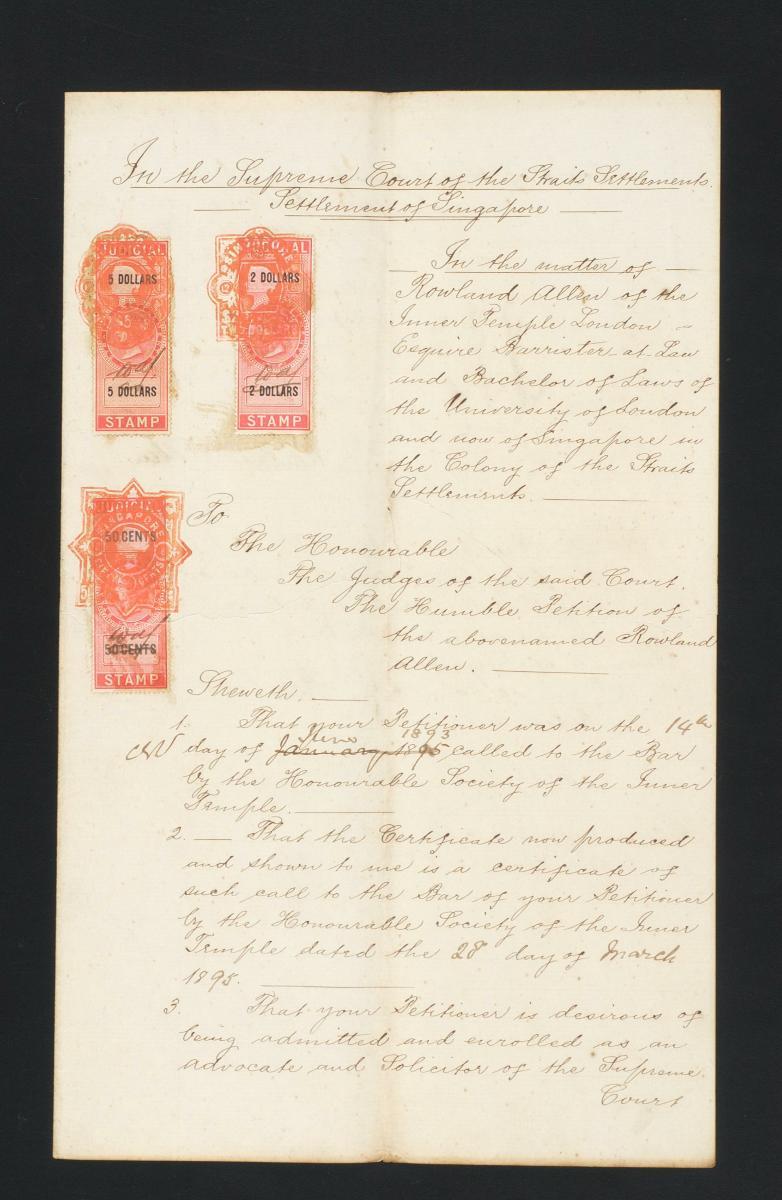 In the Supreme Court of the Straits Settlements.
Settlement of Singapore
JUDICIAL
5 DOLLARS
5 DOLLARS
STAMP
JUDICIAL
SINGAPORE
2 DOLLARS
2 DOLLARS
STAMP
In the matter of
Rowland Allen of the
Inner Temple London
Esquire Barrister-at-Law
and Bachelor of Laws of
the University of London
and now of Singapore in
the Colony of the Straits
Settlements.
JUDICIAL
SINGAPORE
50 CENTS
50 CENTS
STAMP
To
The Honourable
The Judges of the said Court.
The Humble Petition of
the abovenamed Rowland
Allen.
Sheweth.
1. That your Petitioner was on the 14th
June 1893
day of January 1895 called to the Bar
by the Honourable Society of the Inner
Temple.
2. That the Certificate now produced
and shown to me is a certificate of
such call to the Bar of your Petitioner
by the Honourable Society of the Inner
Temple dated the 28 day of March
1895.
3. That your Petitioner is desirous of
being admitted and enrolled as an
advocate and Solicitor of the Supreme
Court